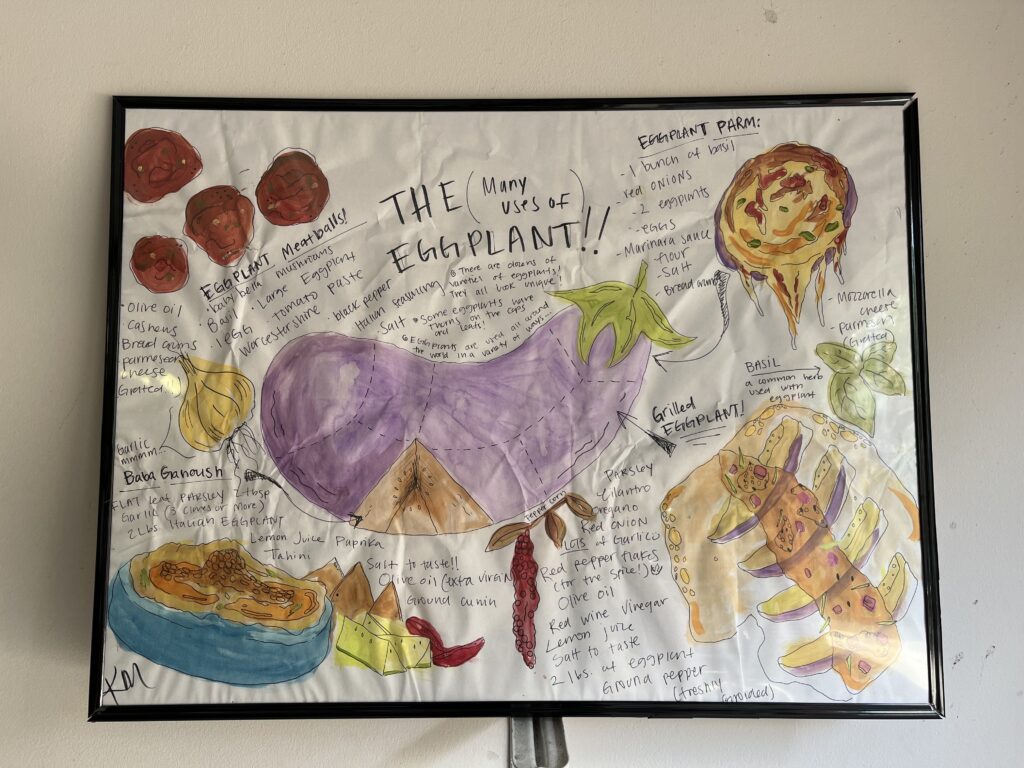 THE (Many uses of)
EGGPLANT!!
• There are dozens of
varieties of eggplants!
They all look unique!
• Some eggplants have
thorns on the caps
and leafs!
• Eggplants are used all around
the world in a variety of ways...
EGGPLANT Meatballs!
• baby bella mushrooms
Basil • Large Eggplant
• 1 EGG • tomato paste
Worcestershire • black pepper
Italian seasoning
Salt
• Olive oil
• Cashews
Bread crums
Parmesean
cheese
Grated
garlic
mmmm...
EGGPLANT PARM:
- 1 bunch of basil
- red onions
- 2 eggplants
- eggs
- Marinara sauce
- flour
- Salt
- Bread crumbs
- Mozzarella
cheese
- Parmesan
(Grated)
BASIL
a common herb
used with
eggplant
Baba Ganoush
FLAT leaf PARSLEY 2 tbsp
Garlic (3 cloves or more)
2 Lbs Italian EGGPLANT
Lemon Juice Paprika
Tahini
Salt to taste!!
Olive oil (extra virgin)
Ground cumin
pepper corn
Grilled
EGGPLANT!
PARSLEY
Cilantro
Oregano
Red ONION
LOTS of Garlic
Red pepper flakes
(for the spice!)
Olive oil
Red wine vinegar
Lemon juice
Salt to taste
2 lbs. of eggplant
Ground pepper
(freshly
KM